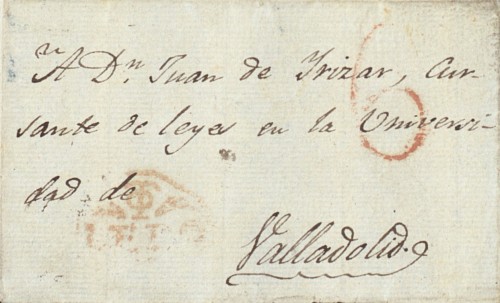 A Dn. Juan de Yrizar, Cur-
sante de leyes en la Universi-
dad de
Valladolid.
6